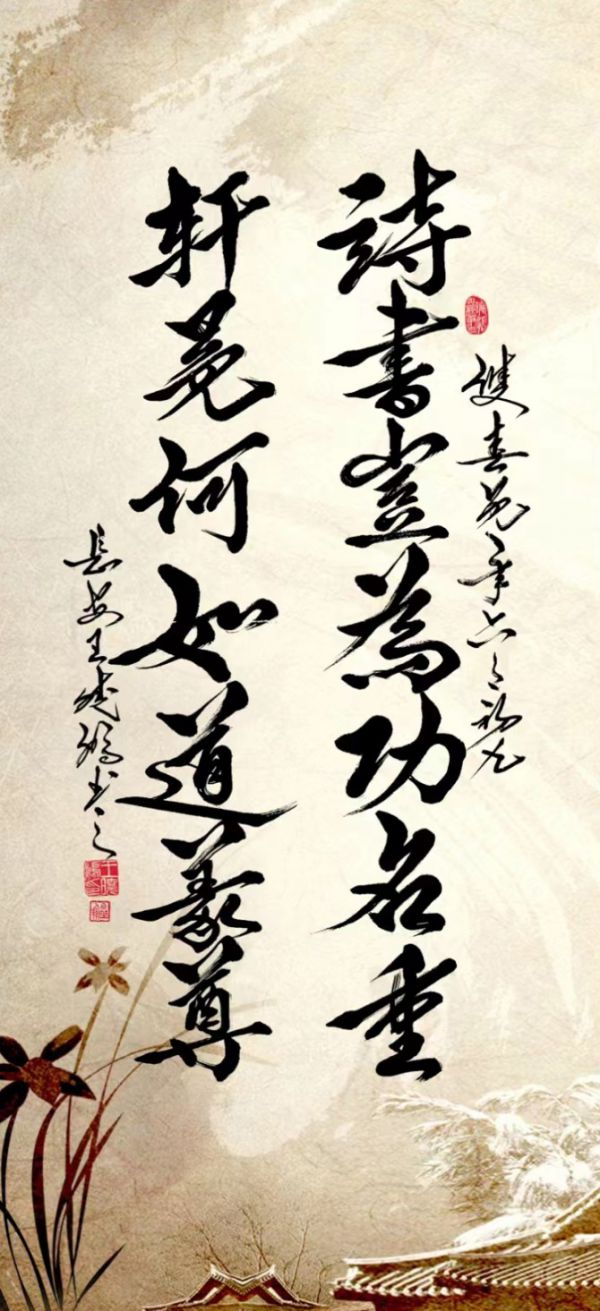 詩書豈為功名重
軒冕何如道義尊
長安王曉鵬書之